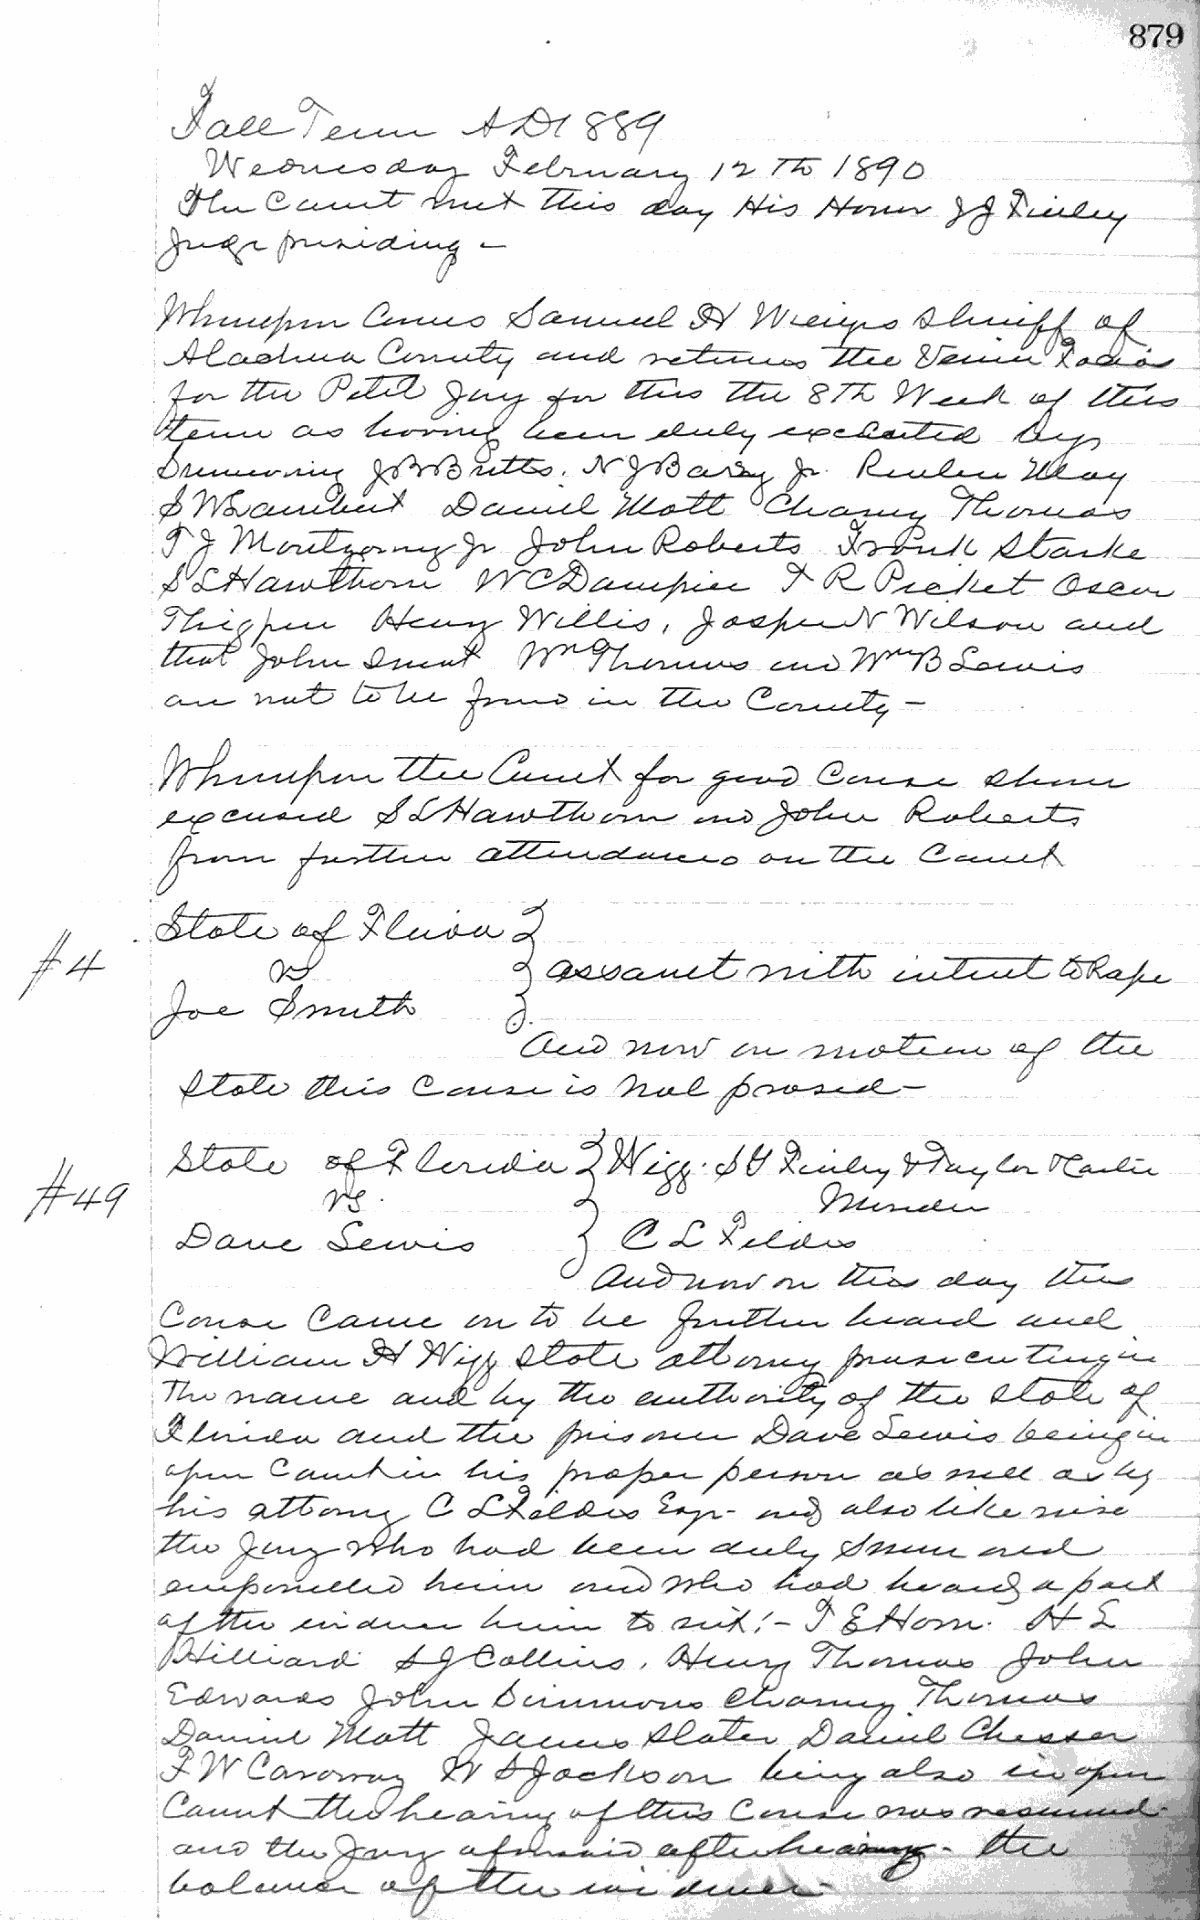 879
Fall Term AD 1889
Wednesday February 12th 1890
The Court met this day His Honor J J Finley
Juge presiding -
Whereupon Comes Samuel H Wienges Sheriff of
Alachua County and returns the Venire Facias
for the Petit Jury for this the 8th Week of this
term as having been duly executed by
Summoning J B Butts. N J Barry Jr. Reuben May
S W Lambert Daniel Mott Chaney Thomas
T J Montgomery Jr John Roberts Frank Starke
S L Hawthorn W C Dampier F R Pecket Oscar
Thigpen Henry Willis, Jasper N Wilson and
that John Smart Wm Thomas and Wm B Lewis
are not to be found in the County -
Whereupon the Court for good Cause shown
excused S L Hawthorn and John Roberts
from further attendances on the Court
State of Florida
#4 vs assault with intent to Rape
Joe Smith
And now on motion of the
State this Cause is Nol prosed -
State of Florida Wigg. S Y Finley & Taylor &
#49 vs. Murder
Dave Lewis C L Fildes
And now on this day this
Cause Came on to be further heard and
William H Wigg State attorney prosecuting in
The name and by the authority of the State of
Florida and the prisoner Dave Lewis being in
open Court in his proper person as well as by
his attorny C L Fildes Esqr - and also likewise
the Jury who had been duly sworn and
empanelled herein and who had heard a part
of the evidence herein to wit: - T E Horn. H L
Hilliard S J Collins, Henry Thomas John
Edwards John Simmons Chaney Thomas
Daniel Mott James Slater Daniel Chesser
F W Caroway W S Jackson being also in open
Court the hearing of this Cause was resumed
and the Jury aforesaid after hearing - the
balance of the evidence -